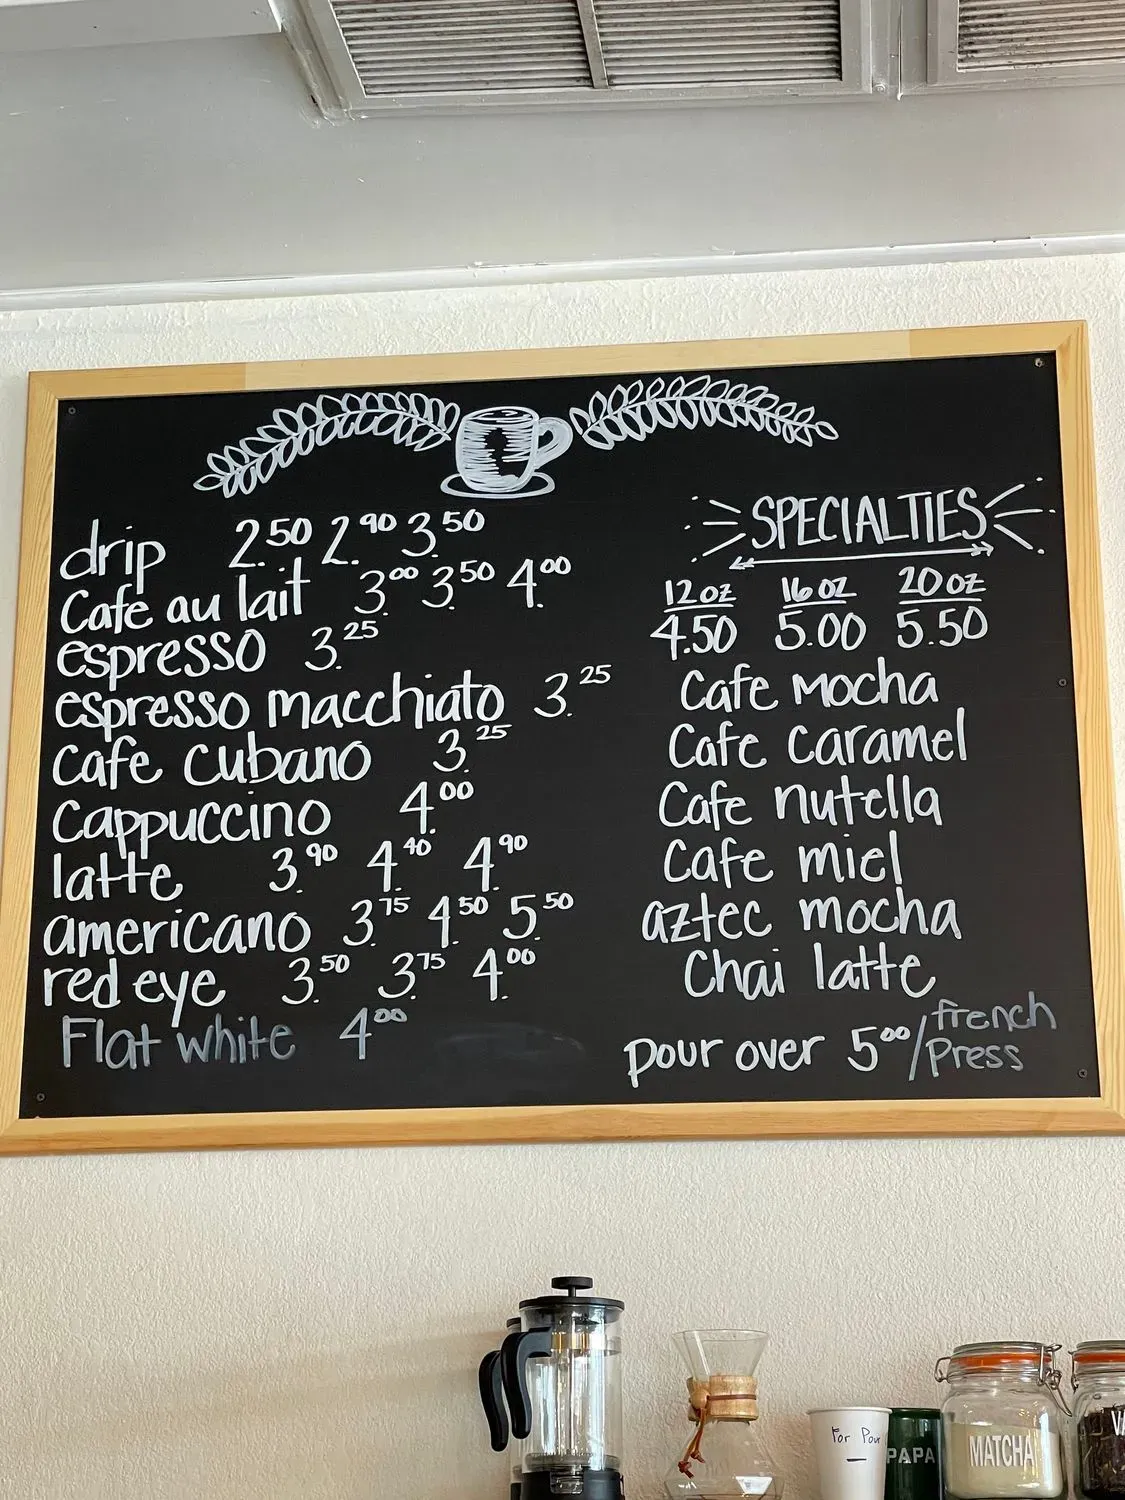 drip 2.50 2.90 3.50
Cafe au lait 3.00 3.50 4.00
espresso 3.25
espresso macchiato 3.25
Cafe Cubano 3.25
Cappuccino 4.00
latte 3.90 4.40 4.90
americano 3.75 4.50 5.50
red eye 3.50 3.75 4.00
Flat white 4.00
SPECIALTIES
12 oz 16 oz 20 oz
4.50 5.00 5.50
Cafe Mocha
Cafe Caramel
Cafe nutella
Cafe miel
aztec mocha
Chai latte
pour over 5.00/french Press
For Pour
PAPA
MATCHA